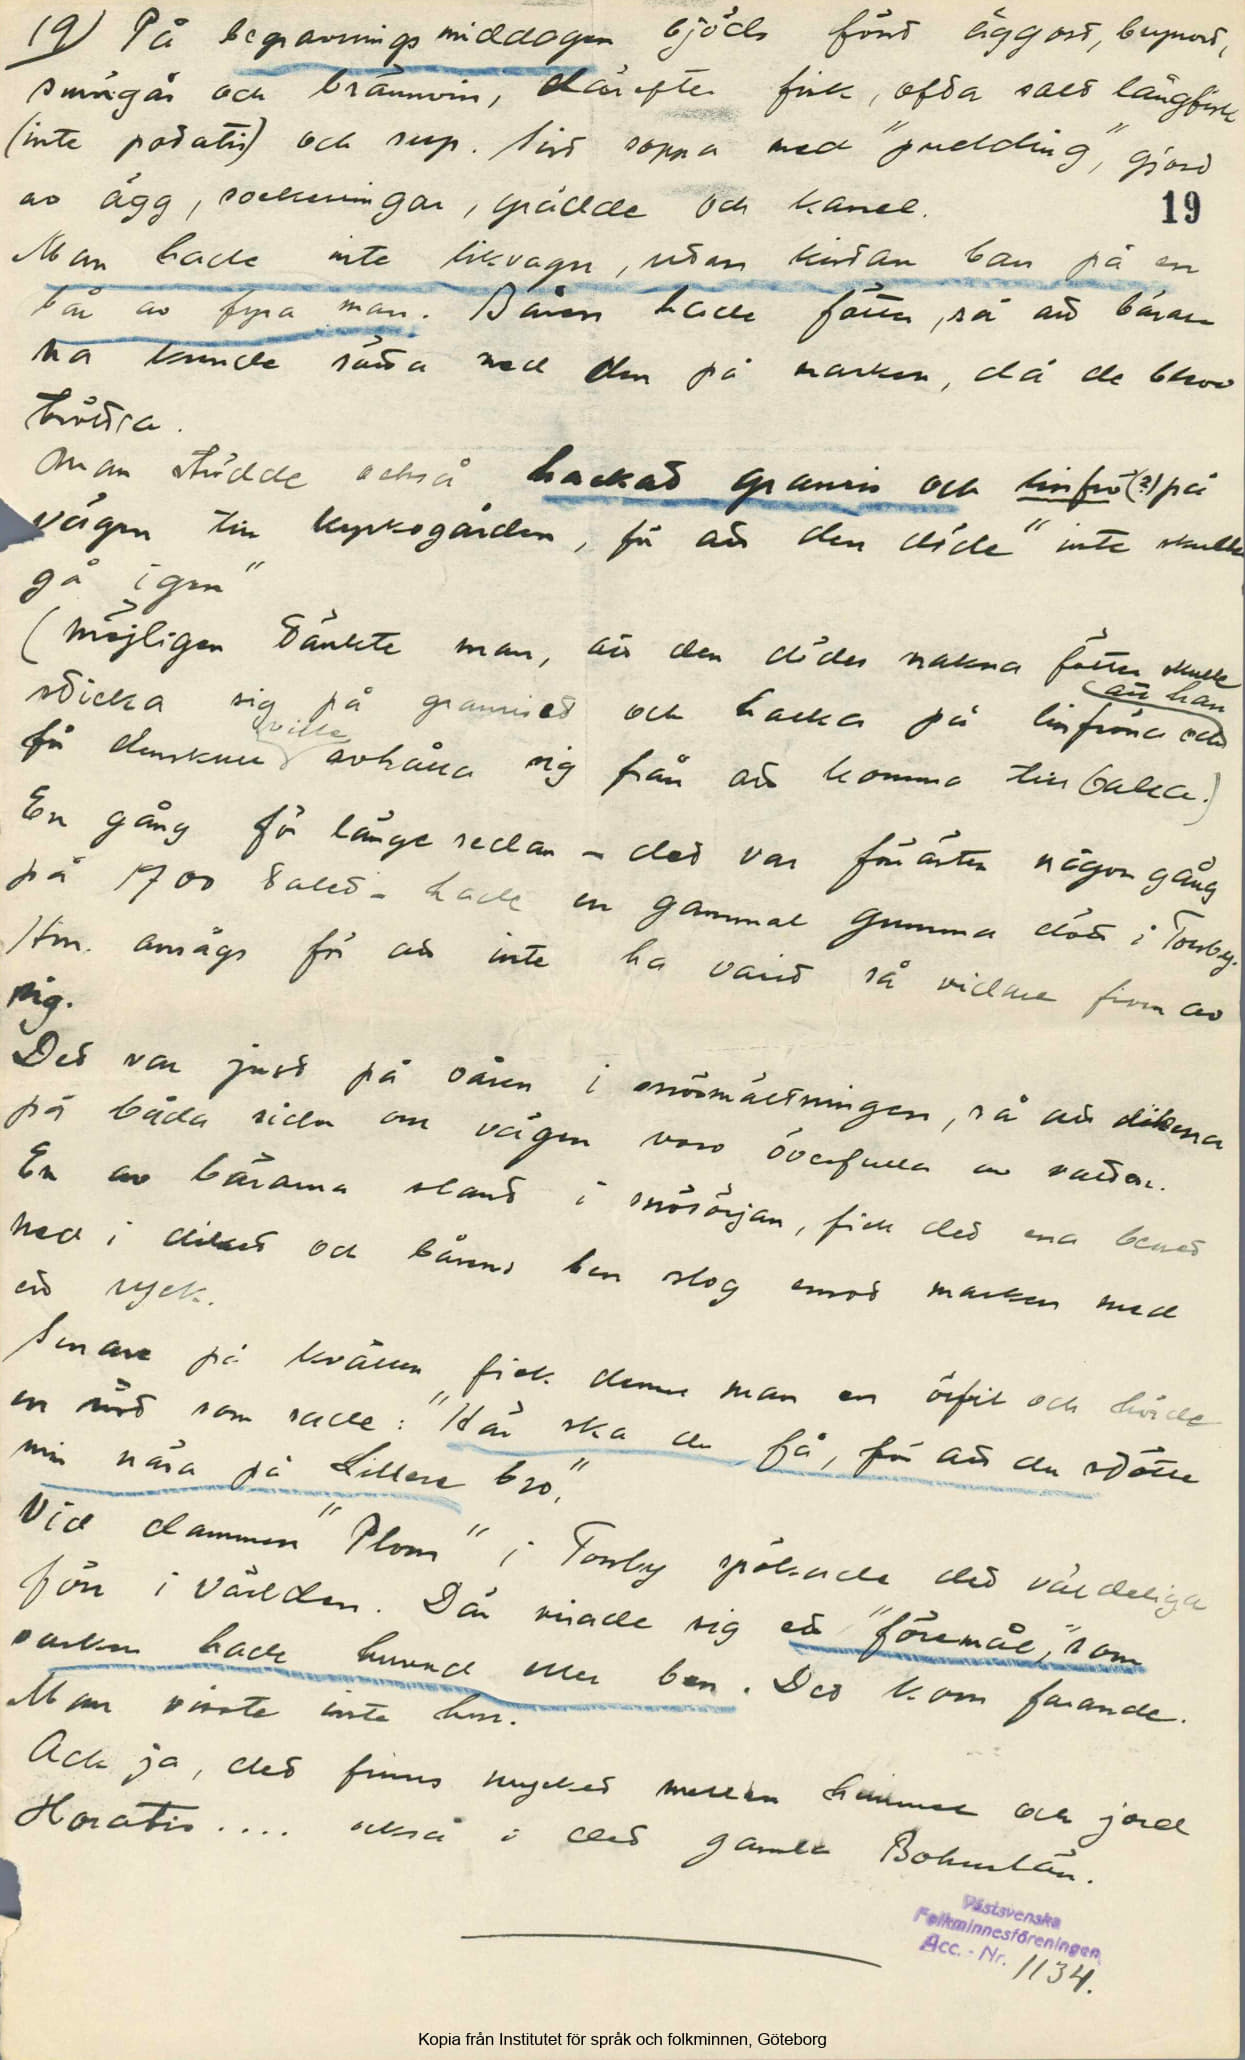 19) På begravningsmiddagen bjöds först äggost,
smörgås och brännvin, därefter fisk, ofta salt långfisk
(inte potatis) och sup. Sist soppa med "pudding", gjord
av ägg, sockerringar, grädde och kanel.
19
Man hade inte likvagn, utan kistan bars på en
bår av fyra man. Båren hade fötter, så att bärar-
na kunde sätta ned den på marken, då de blevo
trötta.
Man strödde också hackat granris och linfrö (?) på
vägen till kyrkogården, för att den döde "inte skulle
gå igen"
(Möjligen tänkte man, att den dödes nakna fötter skulle
sticka sig på granriset och halka på linfröna och
att han
för densknull ville avhålla sig från att komma tillbaka.)
En gång för länge sedan – det var förresten någon gång
på 1700 talet – hade en gammal gumma dött i Torsby.
Hon ansågs för att inte ha varit så vidare from av
sig.
Det var just på våren i snösmältningen, så att dikena
på båda sidor om vägen voro överfulla av vatten.
En av bärarna slant i snösörjan, fick det ena benet
ned i diket och bårens ben slog emot marken med
ett ryck.
Senare på kvällen fick denne man en örfil och hörde
en röst som sade: "Här ska du få, för att du stötte
min nära på Lillera bro."
Vid dammen "Plom" i Torsby spökade det väldeliga
förr i världen. Där visade sig ett "föremål," som
varken hade huvud eller ben. Det kom farande.
Man visste inte hur.
Ack ja, det finns mycket mellan himmel och jord
Horatio .... också i det gamla Bohuslän.
Västsvenska
Folkminnesföreningen
Acc. - Nr. 1134.
Kopia från Institutet för språk och folkminnen, Göteborg